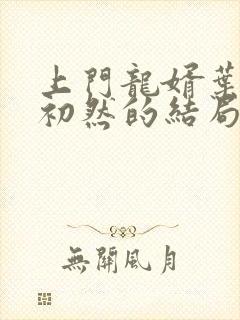 上門龍婿葉
初然的結局
無關風月